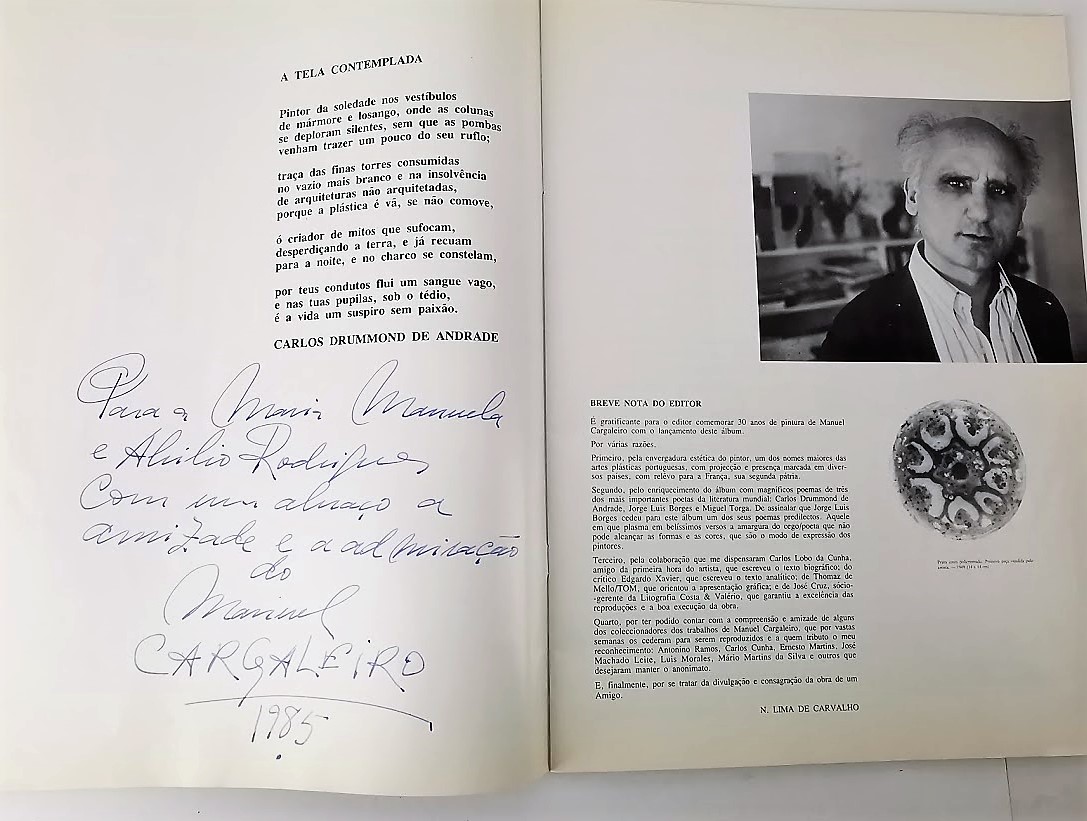 A TELA CONTEMPLADA
Pintor da soledade nos vestíbulos
de mármore e losango, onde as colunas
se deploram silentes, sem que as pombas
venham trazer um pouco do seu ruflo;
traça das finas torres consumidas
no vazio mais branco e na insolvência
de arquiteturas não arquitetadas,
porque a plástica é vã, se não comove,
ó criador de mitos que sufocam,
desperdiçando a terra, e já recuam
para a noite, e no charco se constelam,
por teus condutos flui um sangue vago,
e nas tuas pupilas, sob o tédio,
é a vida um suspiro sem paixão.
CARLOS DRUMMOND DE ANDRADE
Para a Maria Manuela
e Abílio Rodrigues
com um abraço a
amizade e a admiração
do
Manuel
CARGALEIRO
1985
BREVE NOTA DO EDITOR
É gratificante para o editor comemorar 30 anos de pintura de Manuel
Cargaleiro com o lançamento deste álbum.
Por várias razões.
Primeiro, pela envergadura estética do pintor, um dos nomes maiores das
artes plásticas portuguesas, com projecção e presença marcada em diver-
sos países, com relêvo para a França, sua segunda pátria.
Segundo, pelo enriquecimento do álbum com magníficos poemas de três
dos mais importantes poetas da literatura mundial: Carlos Drummond de
Andrade, Jorge Luis Borges e Miguel Torga. De assinalar que Jorge Luis
Borges cedeu para este álbum um dos seus poemas predilectos. Aquele
em que plasma em belíssimos versos a amargura do cego/poeta que não
pode alcançar as formas e as cores, que são o modo de expressão dos
pintores.
Terceiro, pela colaboração que me dispensaram Carlos Lobo da Cunha,
amigo da primeira hora do artista, que escreveu o texto biográfico; do
crítico Edgardo Xavier, que escreveu o texto analítico; de Thomaz de
Mello/TOM, que orientou a apresentação gráfica; e de José Cruz, sócio-
-gerente da Litografia Costa & Valério, que garantiu a excelência das
reproduções e a boa execução da obra.
Quarto, por ter podido contar com a compreensão e amizade de alguns
dos coleccionadores dos trabalhos de Manuel Cargaleiro, que por vastas
semanas os cederam para serem reproduzidos e a quem tributo o meu
reconhecimento: Antonino Ramos, Carlos Cunha, Ernesto Martins, José
Machado Leite, Luis Morales, Mário Martins da Silva e outros que
desejaram manter o anonimato.
E, finalmente, por se tratar da divulgação e consagração da obra de um
Amigo.
N. LIMA DE CARVALHO